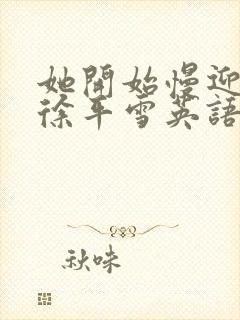 她開始慢迎
徐平雪英語
秋味